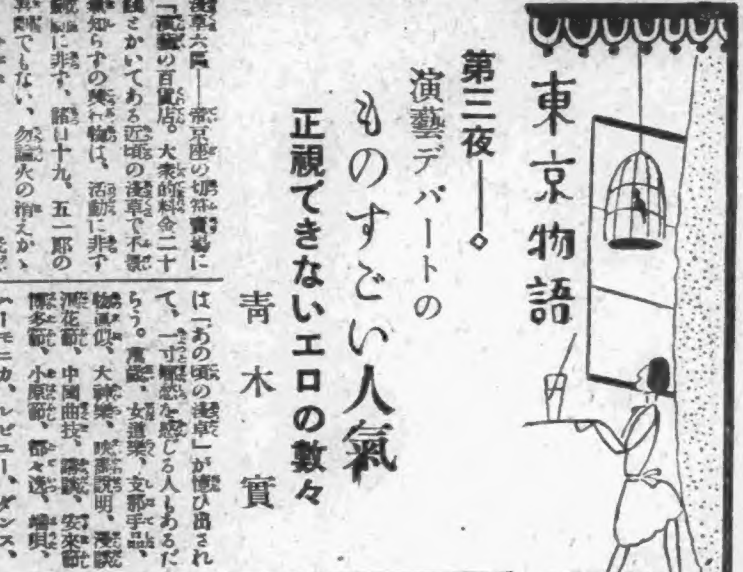 東京物語
第三夜——◇
演藝デパートの
ものすごい人氣
正視できないエロの數々
青木實
淺草六區——帝京座の切符賣場に
「萬藝の百貨店。大衆的料金二十
錢とかいてある近頃の淺草で不景
氣知らずの興行物は、活動に非ず
に非ず、諸口十九、五一郎の
でもない、勿論火の消えかゝ
は「あの頃の淺草」が憶ひ出され
て、一寸感を感じる人もあるだ
らう。萬歳、女道樂、支那手品、
物眞似、大神樂、映畫説明、漫談
浪花節、中國曲技、講談、安來節
博多節、小原節、都々逸、端唄、
ハーモニカ、レビュー、ダンス、